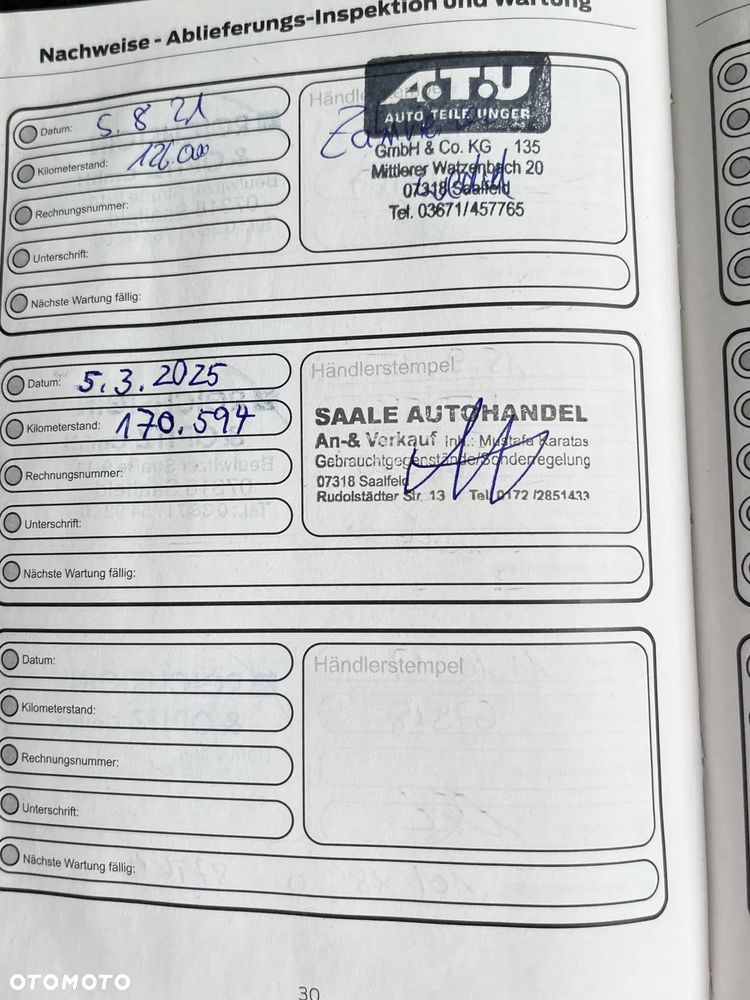 Nachweise - Ablieferungs-Inspektion und Wartung
Datum: 5.8 21
Kilometerstand: 126.000
Rechnungsnummer:
Unterschrift:
Nächste Wartung fällig:
A.T.U
AUTO TEILE UNGER
GmbH & Co. KG 135
Mittlerer Watzenbach 20
07318 Saalfeld
Tel. 03671/457765
Datum: 5.3.2025
Kilometerstand: 170.594
Rechnungsnummer:
Unterschrift:
Nächste Wartung fällig:
Händlerstempel
SAALE AUTOHANDEL
An-& Verkauf Inh.: Mustafa Karatas
Gebrauchtgegenstände/Sonderregelung
07318 Saalfeld
Rudolstädter Str. 13 Tel. 0172 /2851433
Datum:
Kilometerstand:
Rechnungsnummer:
Unterschrift:
Nächste Wartung fällig:
Händlerstempel
30
OTOMOTO